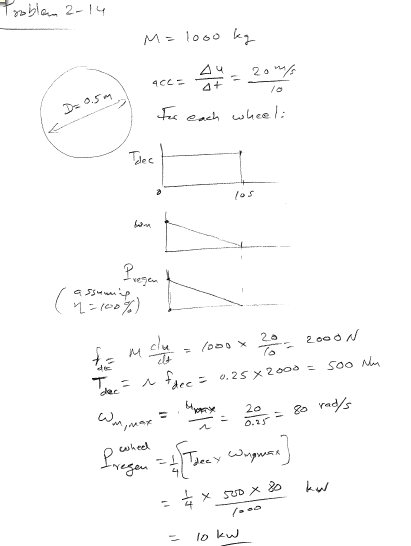 Problem 2-14
M = 1000 kg
acc = Δu/Δt = 20 m/s / 10
D = 0.5 m
For each wheel:
Tdec
0 10s
ωm
Pregen
(assuming η = 100%)
fdec = M du/dt = 1000 × 20/10 = 2000 N
Tdec = r fdec = 0.25 × 2000 = 500 Nm
ωm,max = umax/r = 20/0.25 = 80 rad/s
P wheel regen = 1/4 [Tdec × ωm,max]
= 1/4 × 500 × 80 / 1000 kW
= 10 kW